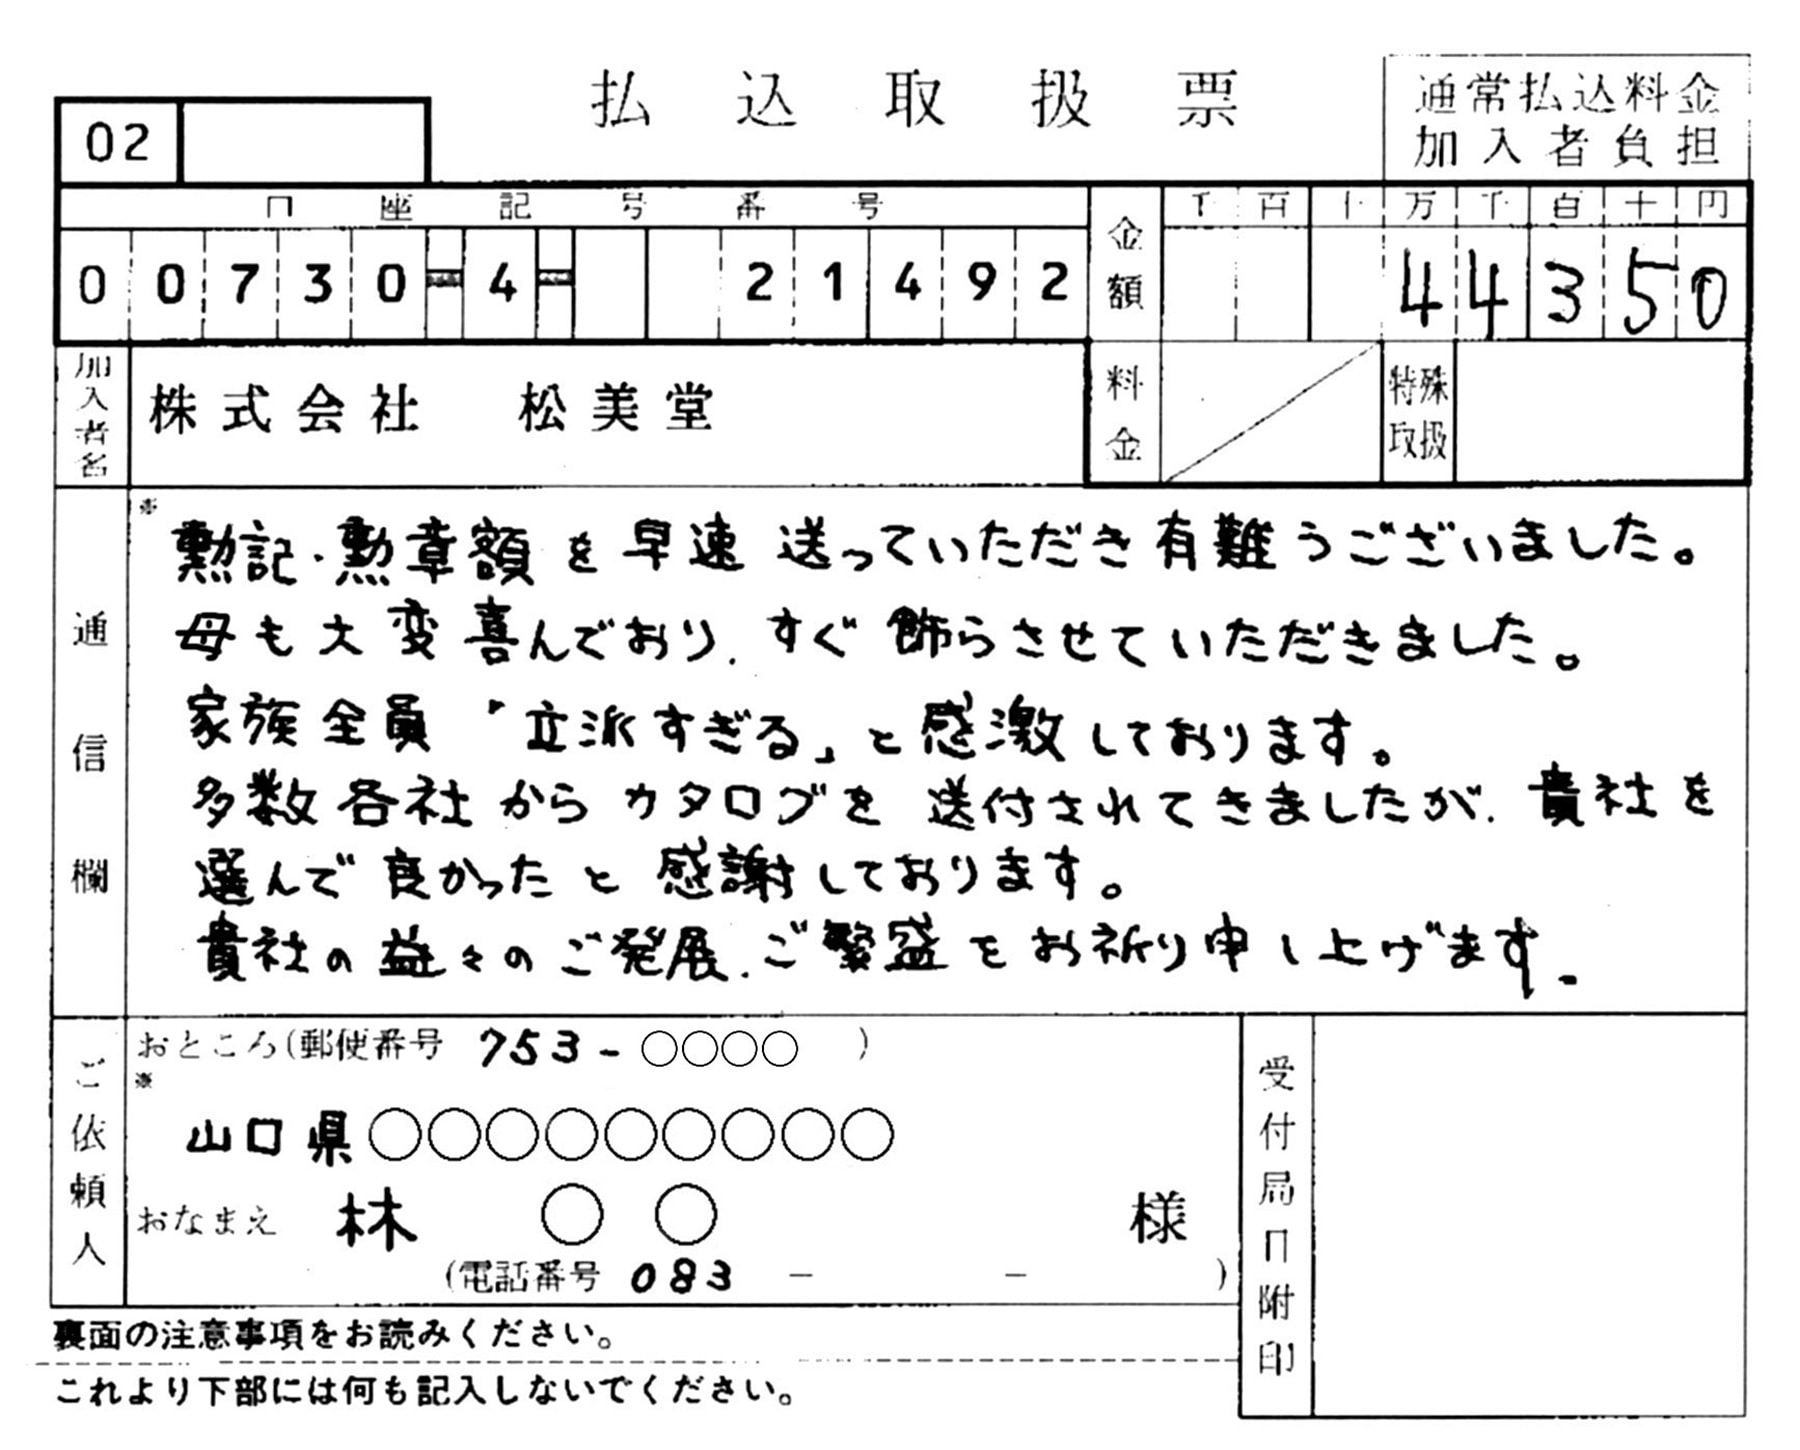 払込取扱票
通常払込料金
加入者負担
02
口座記号番号
金額
千百十万千百十円
00730-4- 21492
44350
加入者名
株式会社 松美堂
料金
特殊取扱
通信欄
※
勲記・勲章額を早速送っていただき有難うございました。
母も大変喜んでおり、すぐ飾らさせていただきました。
家族全員「立派すぎる」と感激しております。
多数各社からカタログを送付されてきましたが、貴社を
選んで良かったと感謝しております。
貴社の益々のご発展、ご繁盛をお祈り申し上げます。
ご依頼人
おところ(郵便番号 753-○○○○ )
※
山口県○○○○○○○○○
おなまえ 林 ○○ 様
(電話番号 083 - - )
受付局日附印
裏面の注意事項をお読みください。
これより下部には何も記入しないでください。